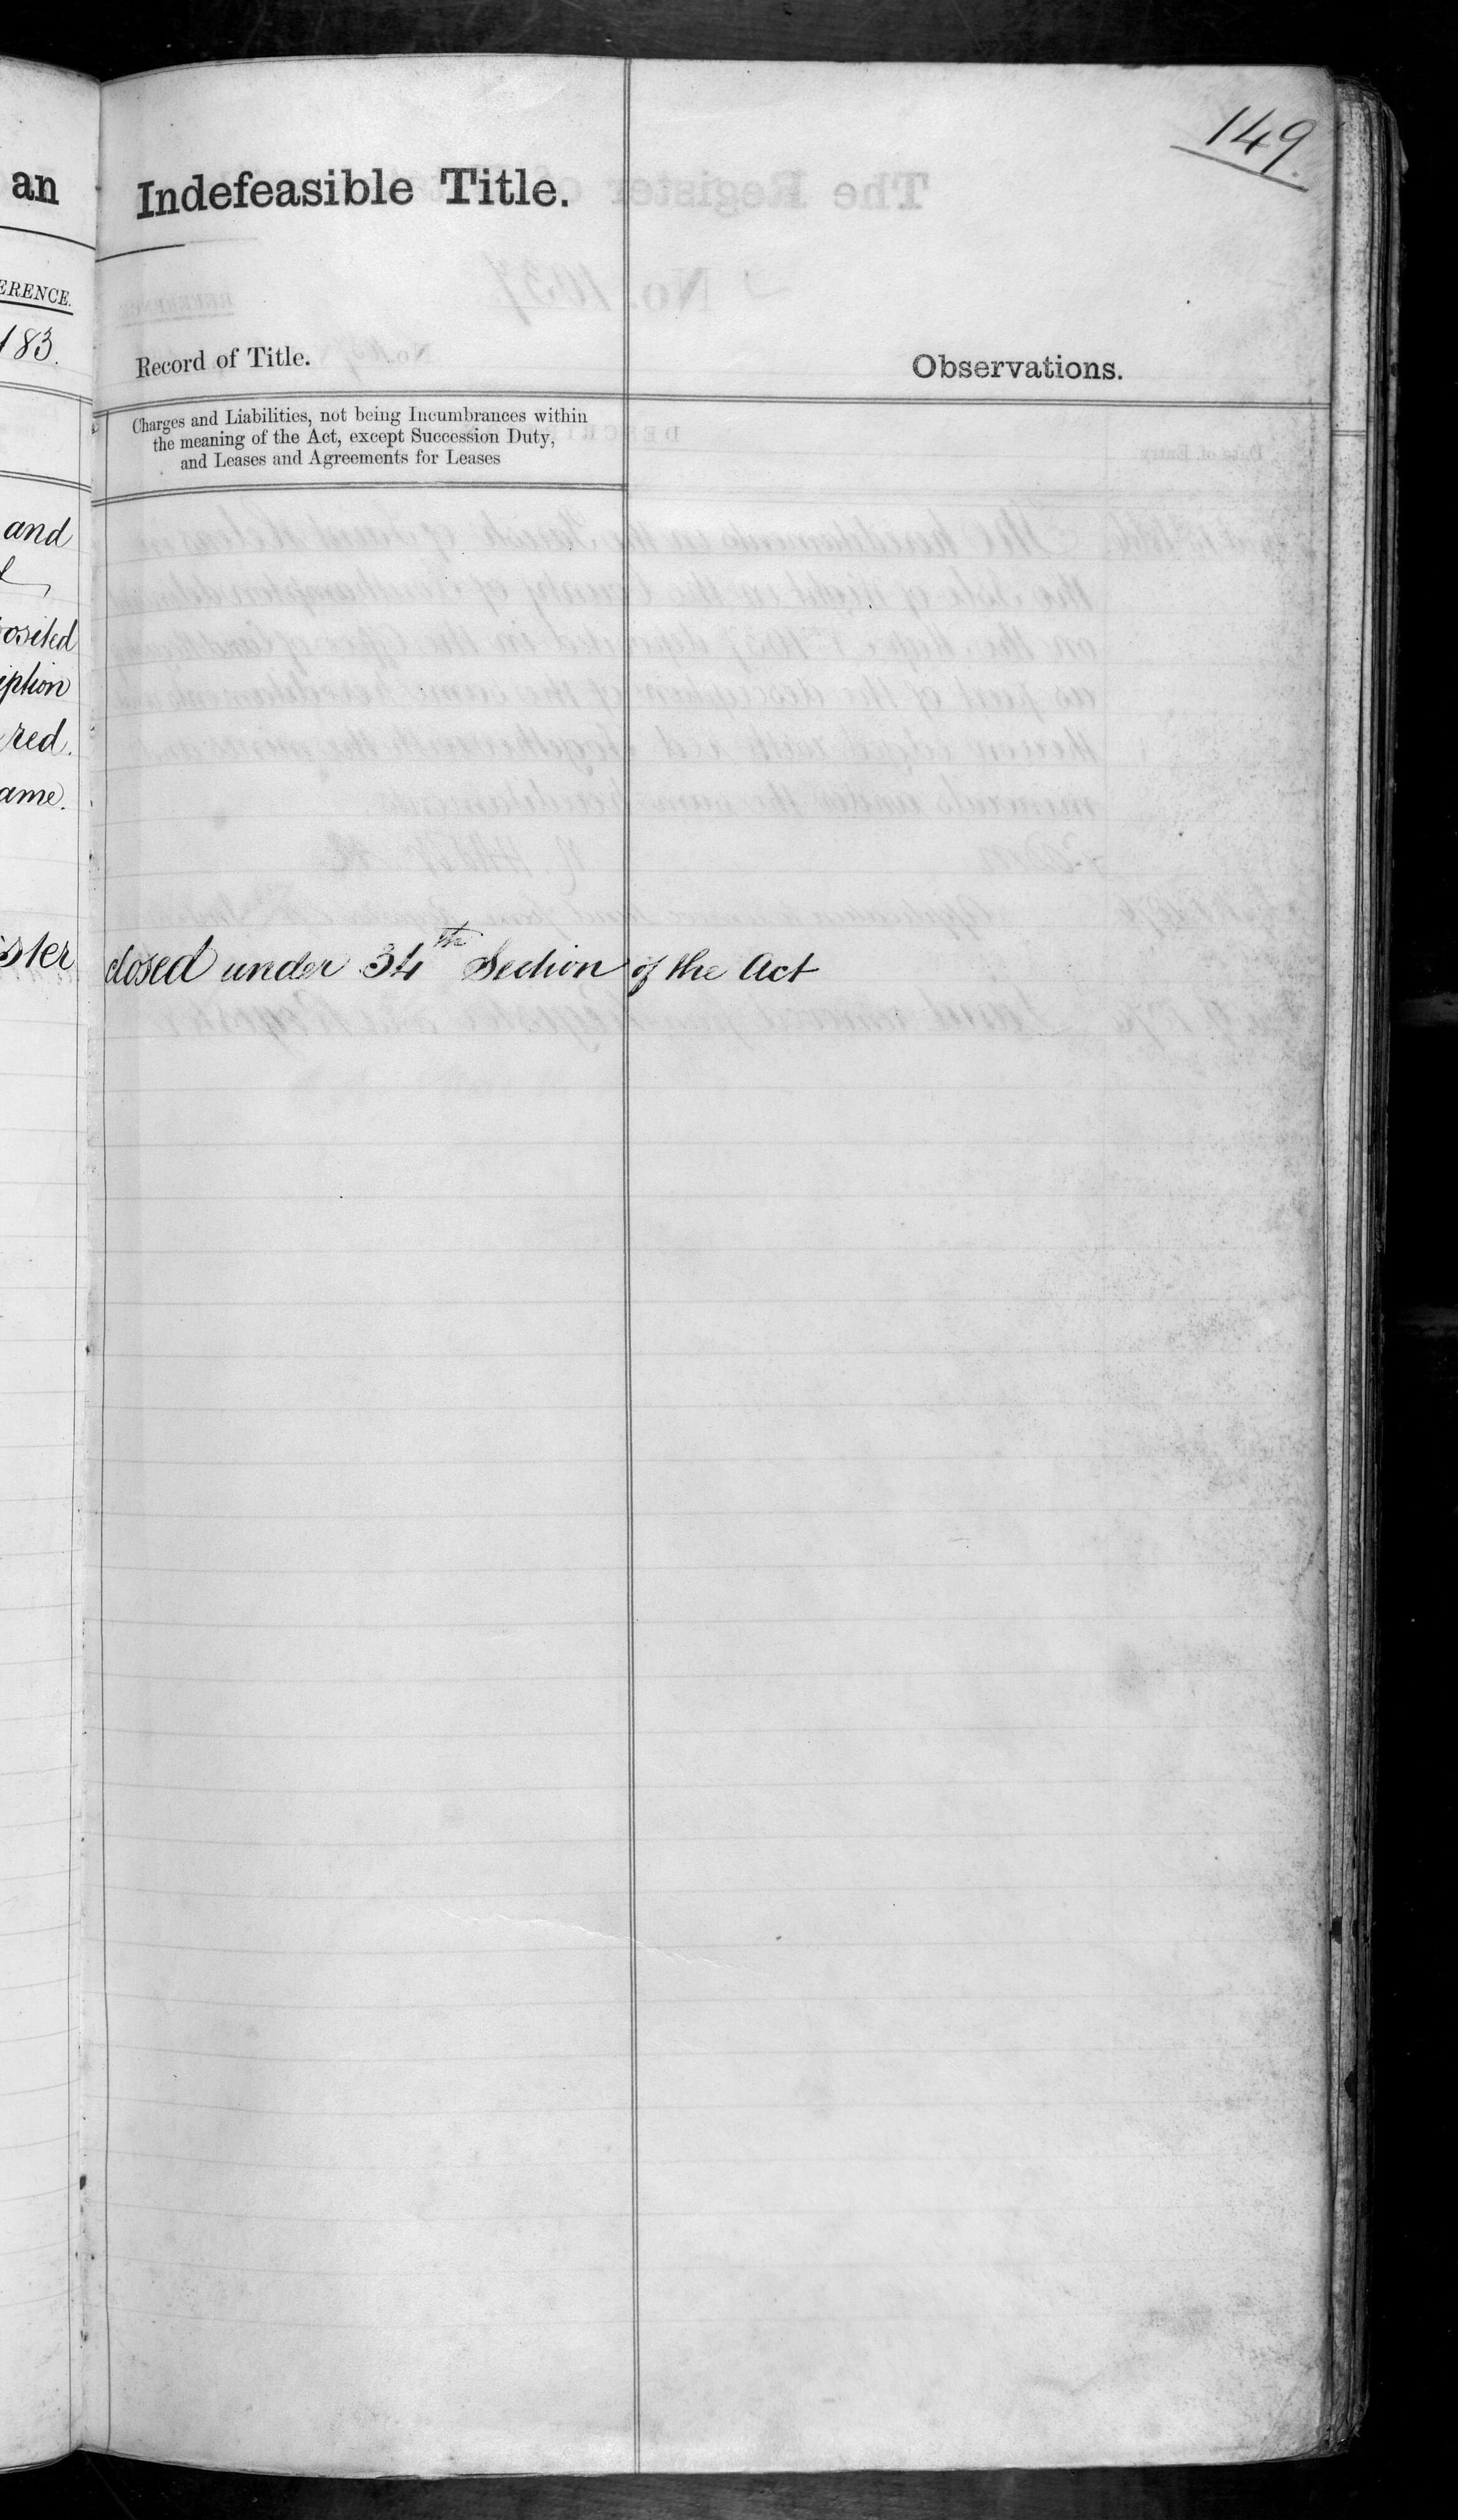 149.
an
Indefeasible Title.
ERENCE.
183.
Record of Title.
Observations.
Charges and Liabilities, not being Incumbrances within
the meaning of the Act, except Succession Duty,
and Leases and Agreements for Leases
and
osited
iption
red.
ame.
ster closed under 34th Section of the Act